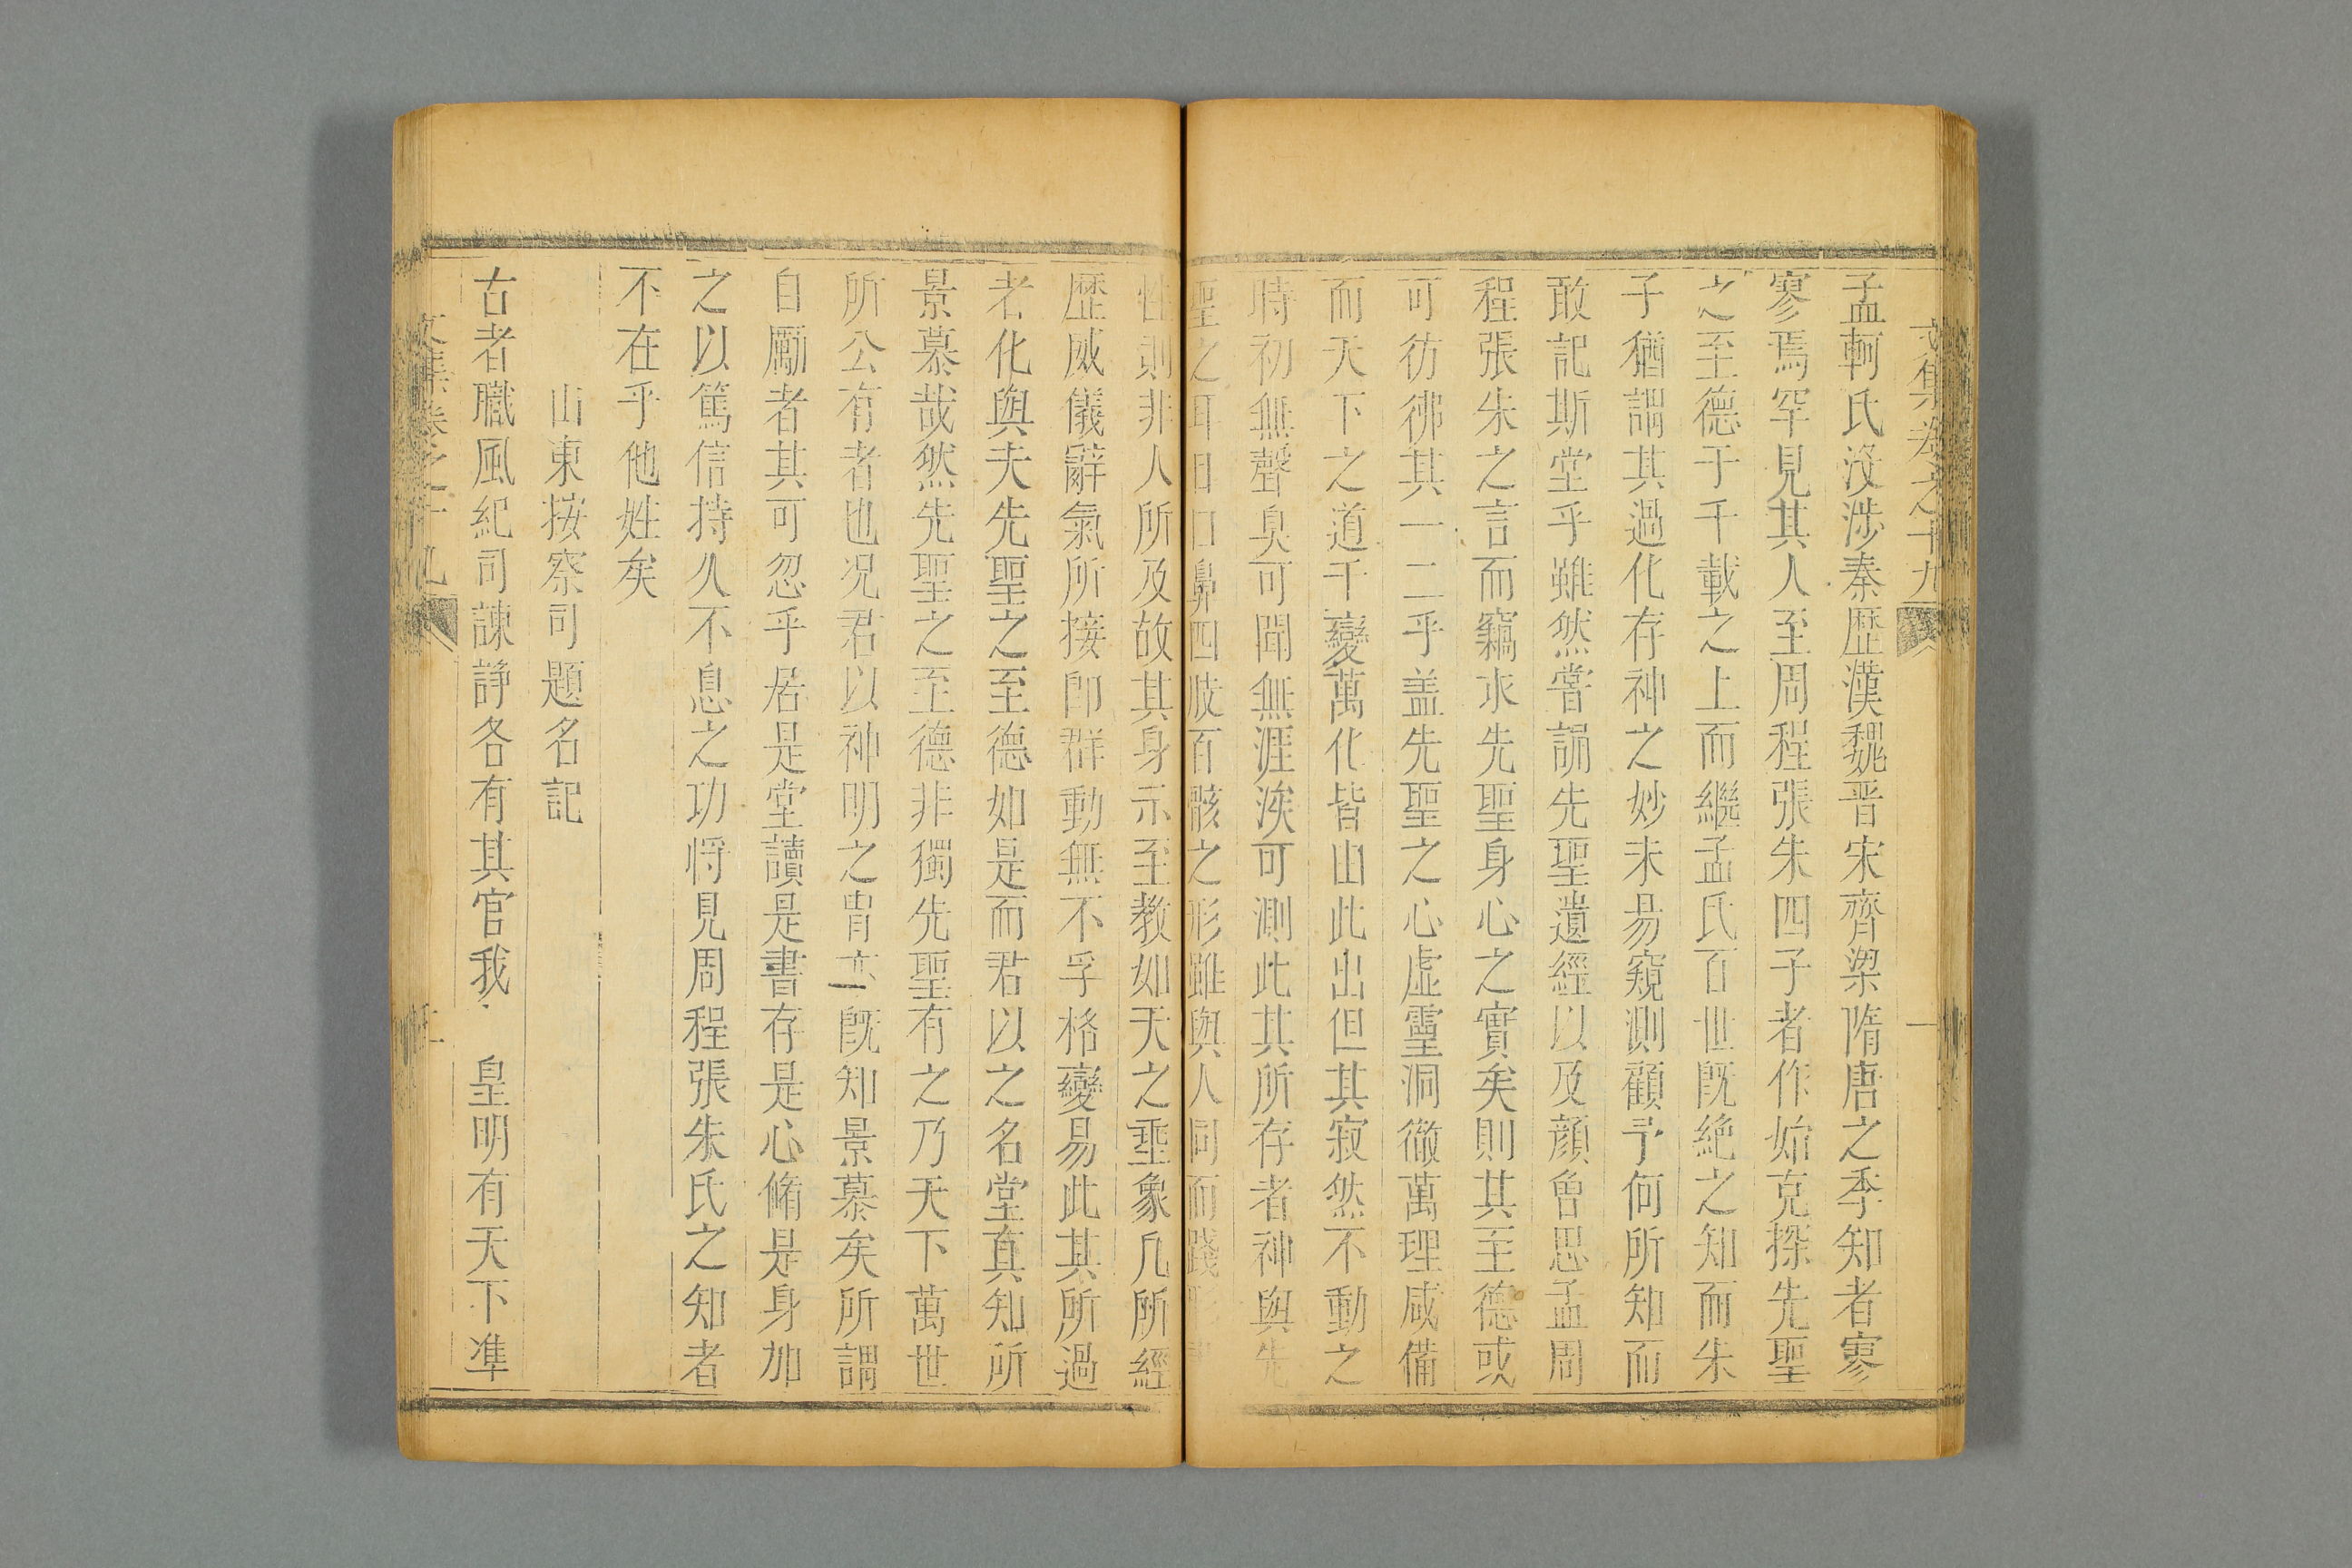 文集卷之十九
孟軻氏沒涉秦歷漢魏晋宋齊梁隋唐之季知者寥
寥焉罕見其人至周程張朱四子者作始克探先聖
之至德于千載之上而繼孟氏百世既絶之知而朱
子猶謂其過化存神之妙未易窺測顧予何所知而
敢記斯堂乎雖然嘗誦先聖遺經以及顔曾思孟周
程張朱之言而竊求先聖身心之實矣則其至德或
可彷彿其一二乎盖先聖之心虛靈洞徹萬理咸備
而天下之道千變萬化皆由此出但其寂然不動之
時初無聲臭可聞無涯涘可測此其所存者神與先
聖之耳目口鼻四肢百骸之形雖與人同而踐形
性則非人所及故其身示至教如天之垂象凡所經
歷威儀辭氣所接卽群動無不孚格變易此其所過
者化與夫先聖之至德如是而君以之名堂真知所
景慕哉然先聖之至德非獨先聖有之乃天下萬世
所公有者也况君以神明之胄既知景慕矣所謂
自勵者其可忽乎居是堂讀是書存是心脩是身加
之以篤信持久不息之功将見周程張朱氏之知者
不在乎他姓矣
山東按察司題名記
古者職風紀司諫諍各有其官我 皇明有天下準
文集卷之十九